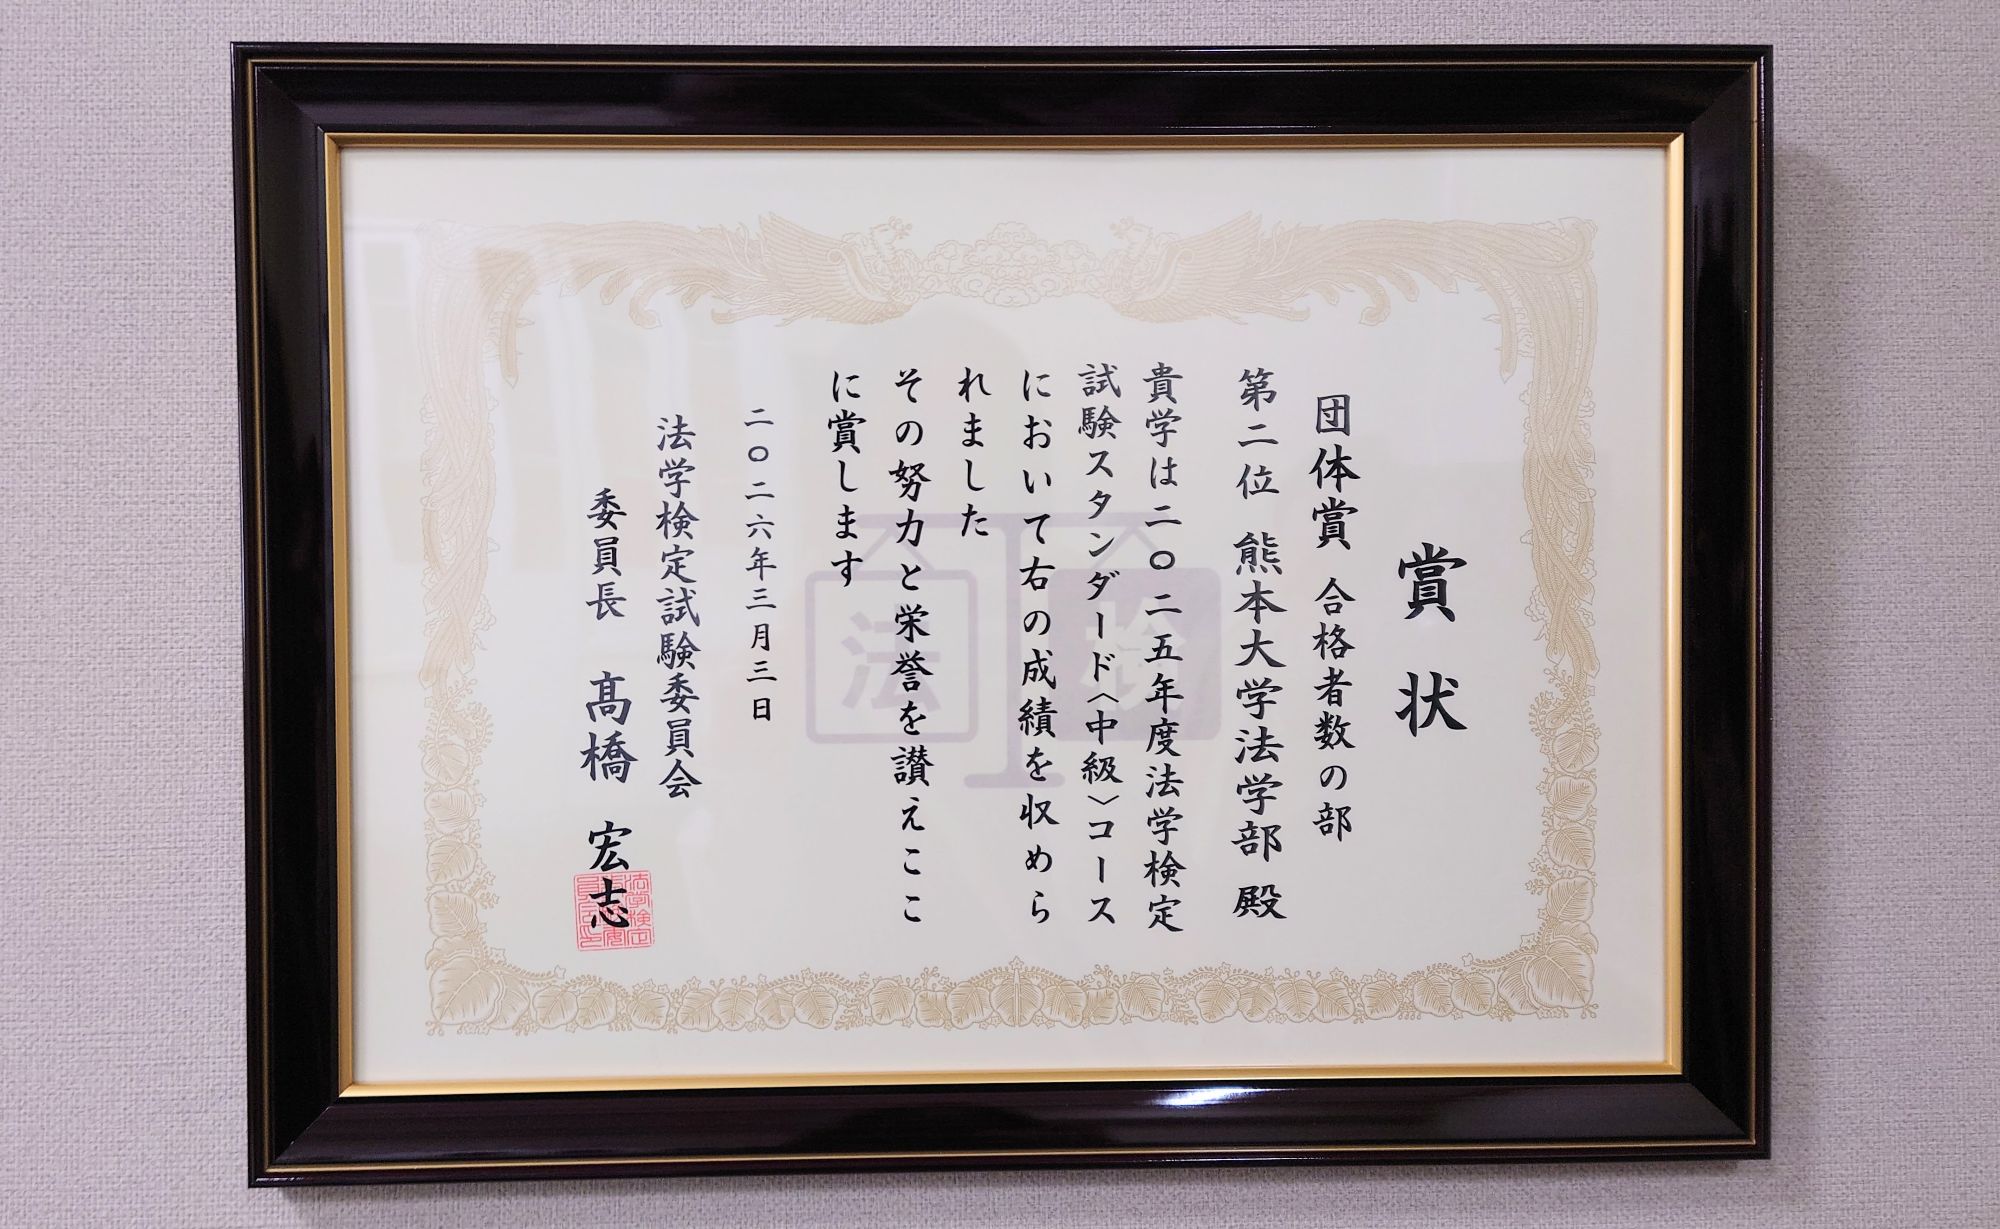 賞状
団体賞 合格者数の部
第二位 熊本大学法学部 殿
貴学は二〇二五年度法学検定
試験スタンダード〈中級〉コース
において右の成績を収めら
れました
その努力と栄誉を讃えここ
に賞します
二〇二六年三月三日
法学検定試験委員会
委員長 髙橋 宏志
法検